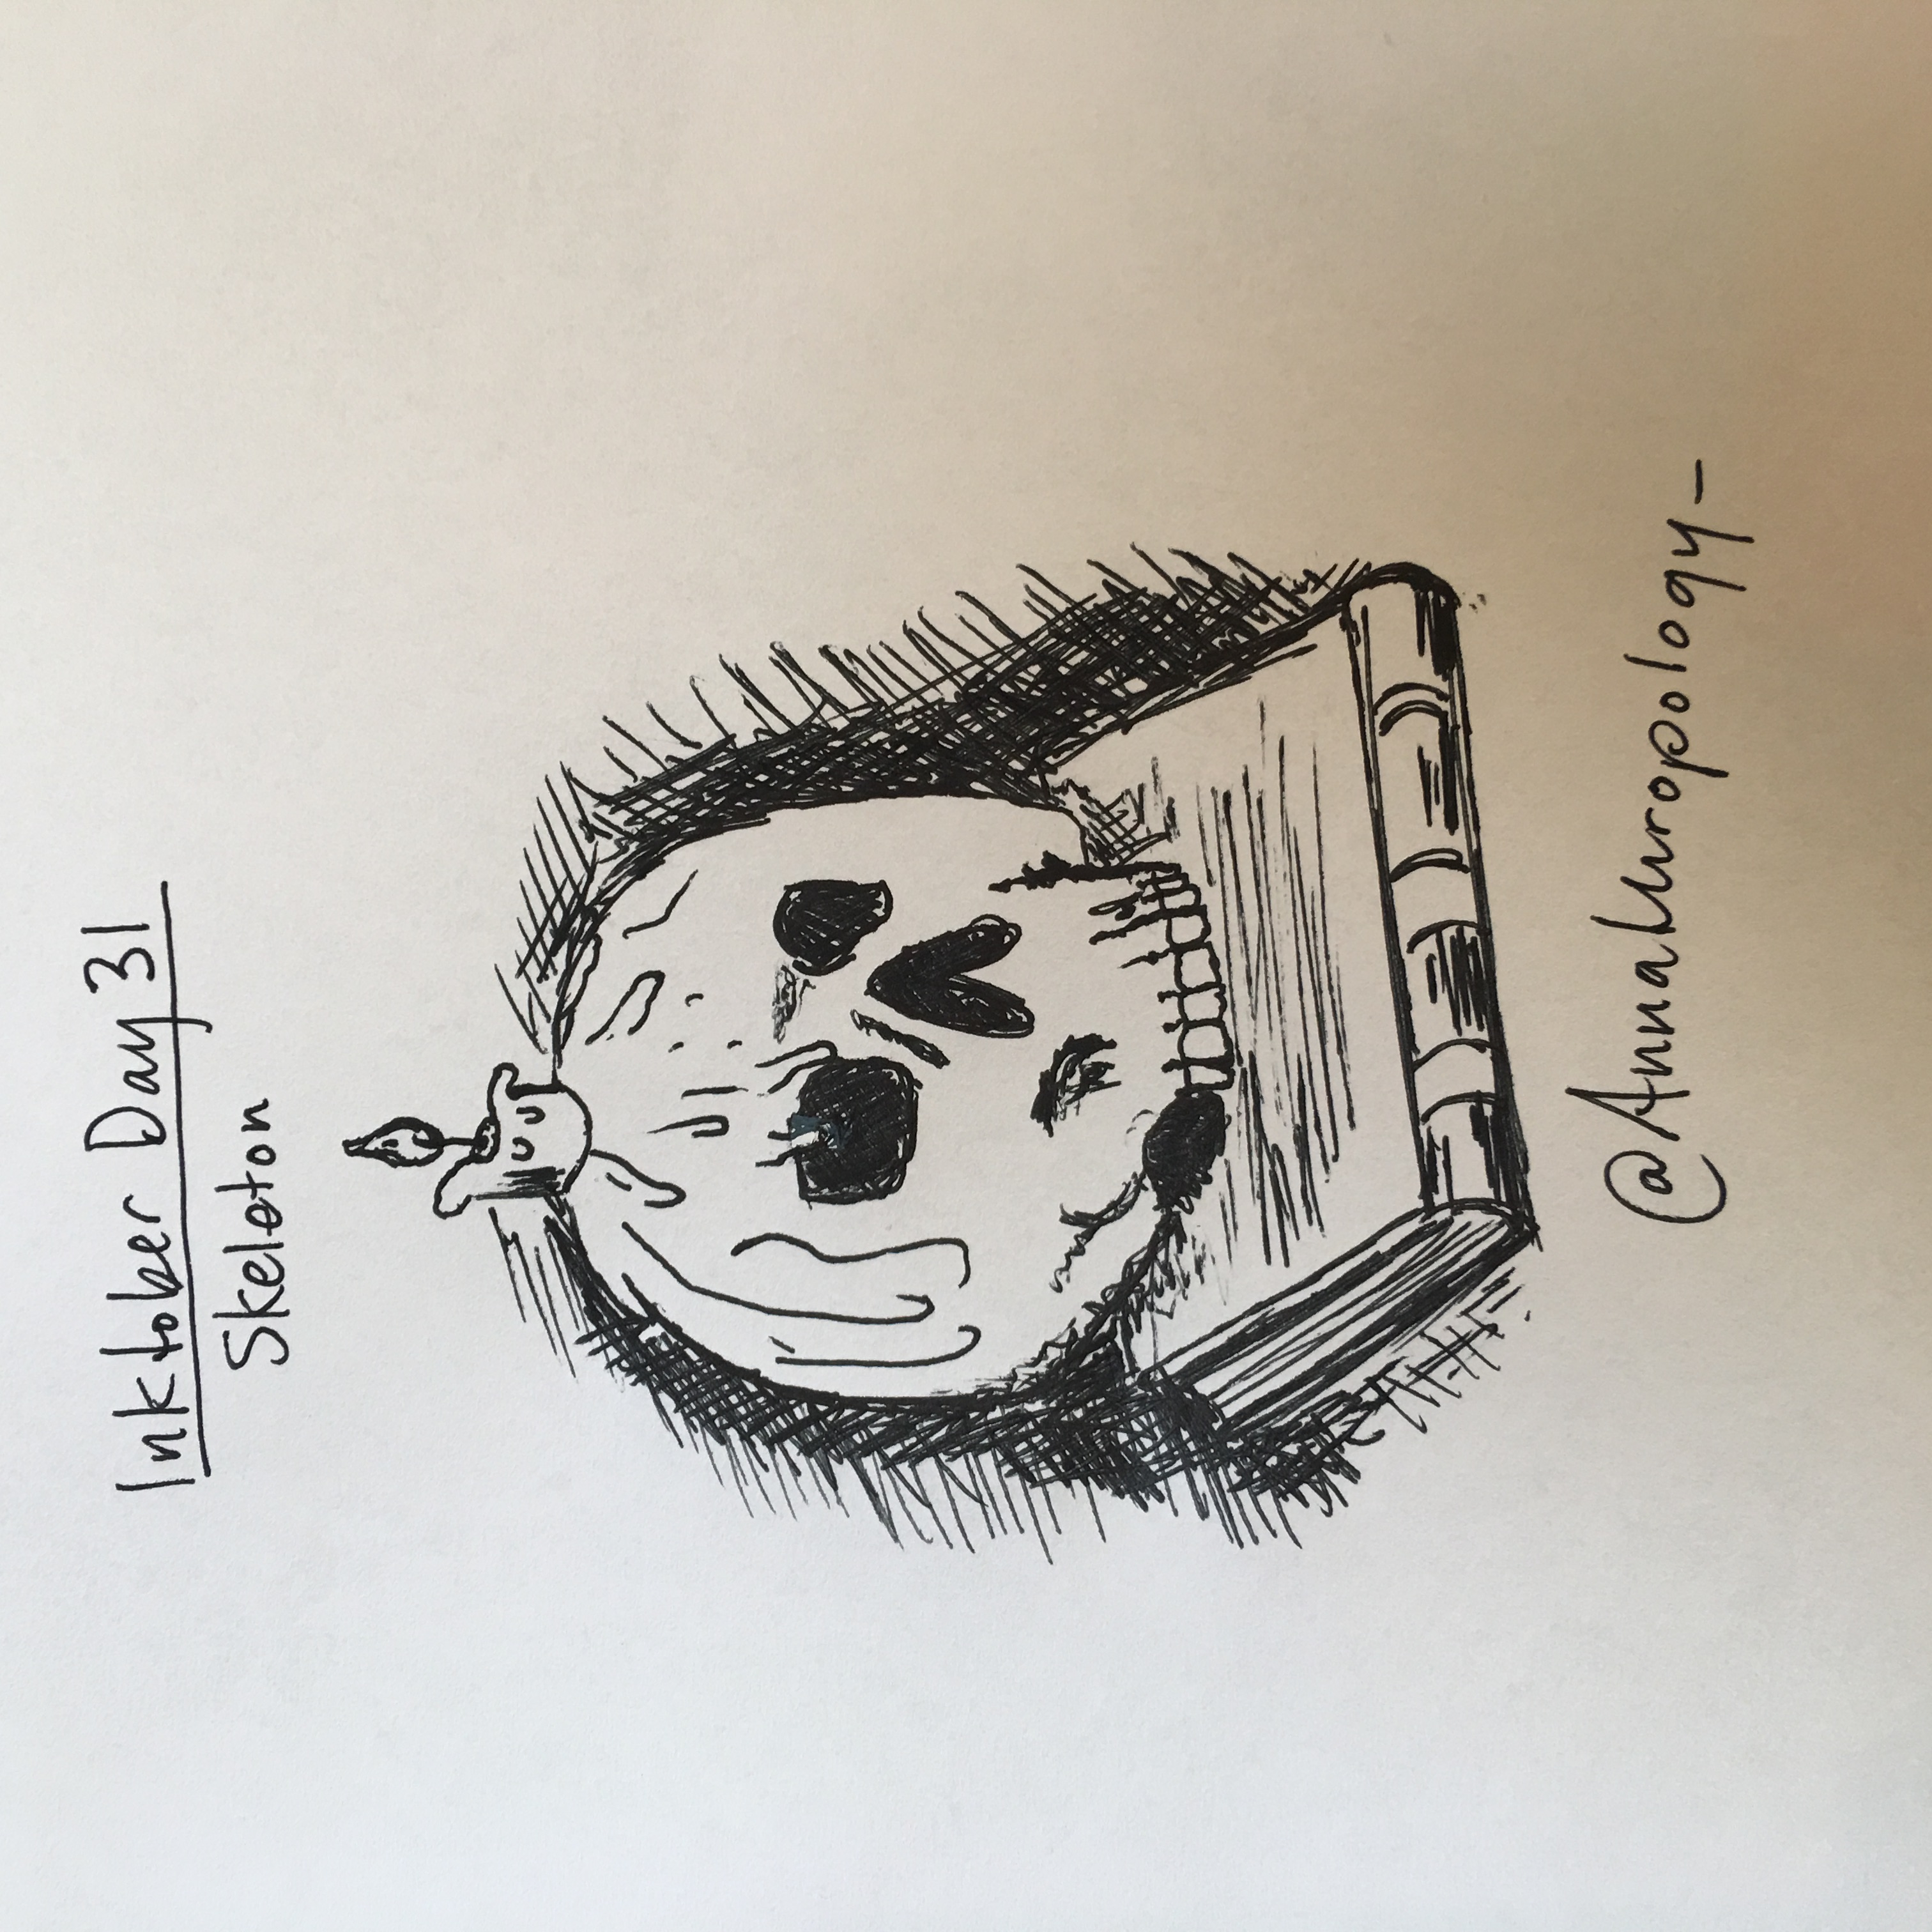 Inktober Day 31
Skeleton
@Annathropology_